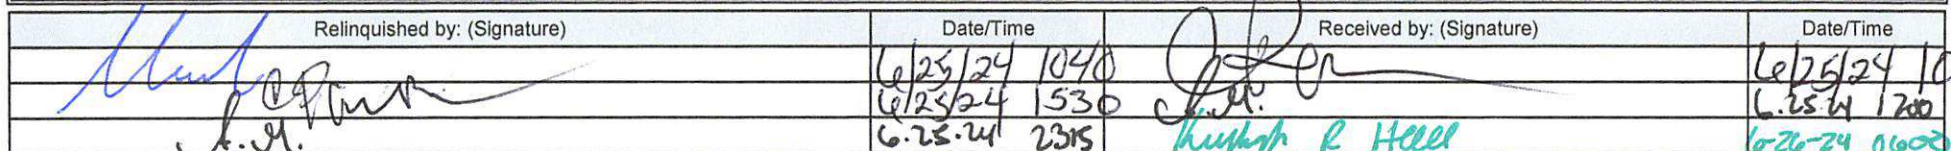 Relinquished by: (Signature) Date/Time Received by: (Signature) Date/Time
6/25/24 1040 6/25/24 10
6/25/24 1530 A.M. 6.25.24 1700
A.M. 6.25.24 2315 R Hall 6-26-24 0600